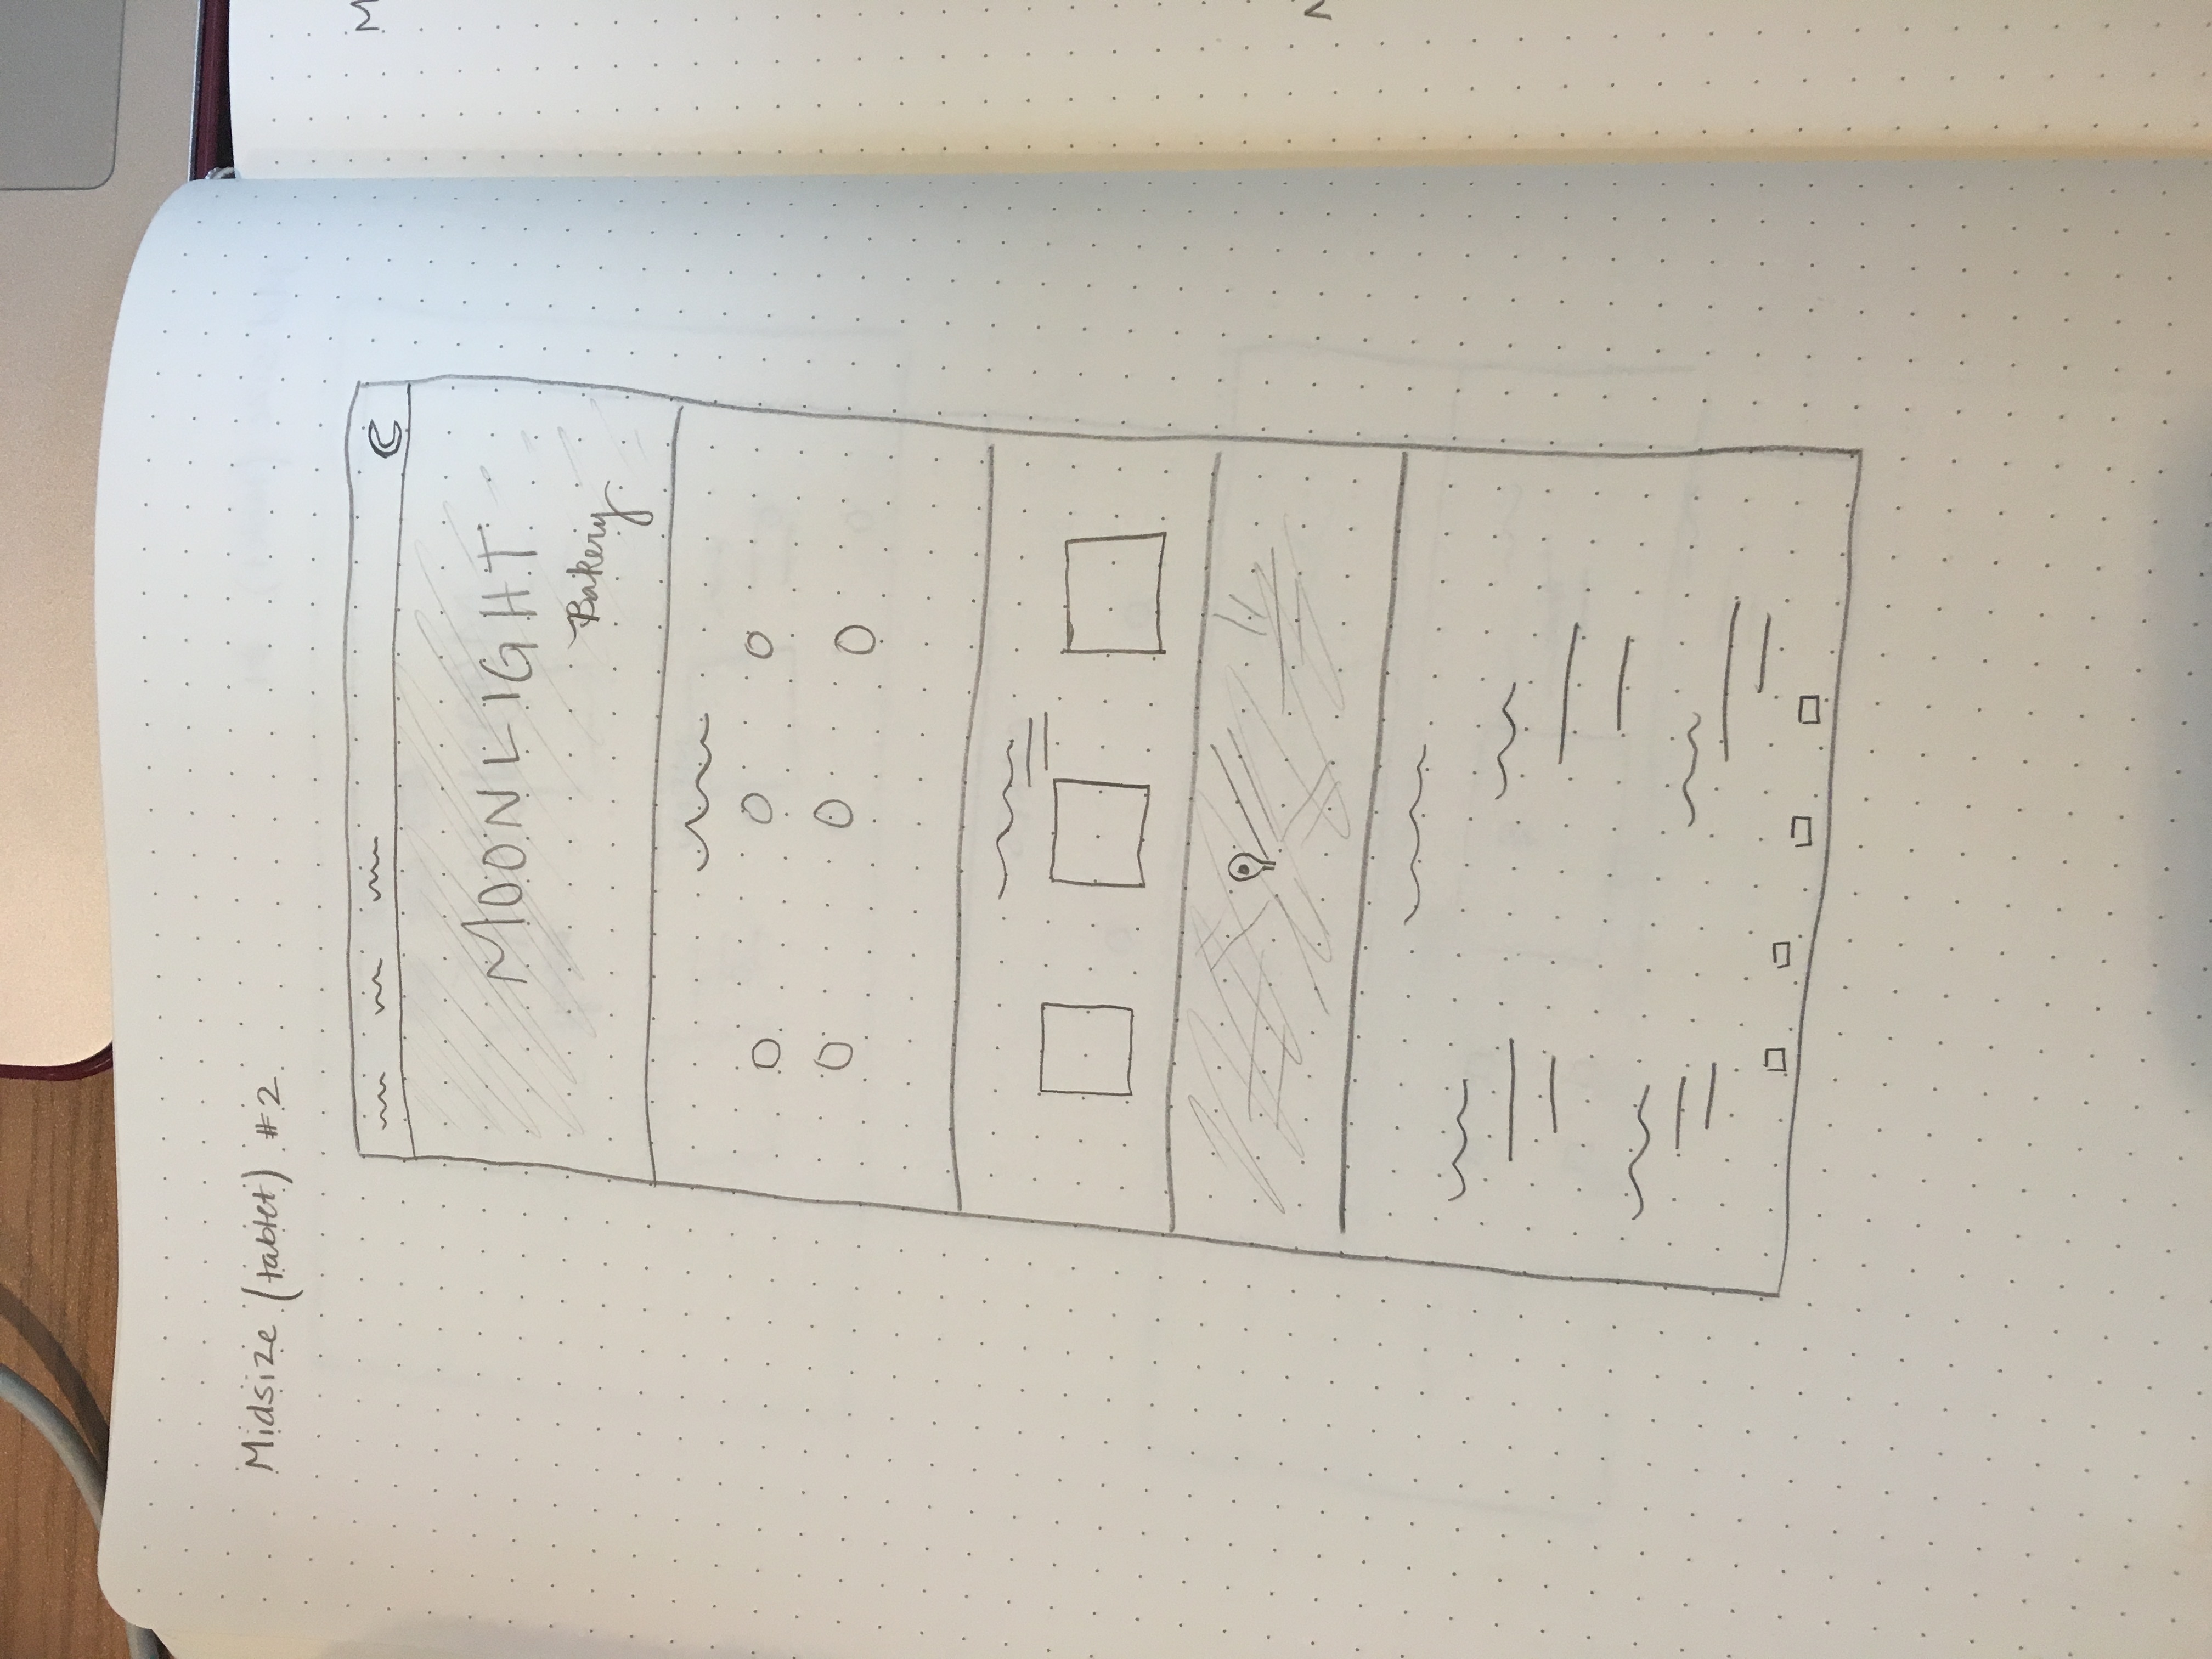 Midsize (tablet) #2
MOONLIGHT
Bakery
M